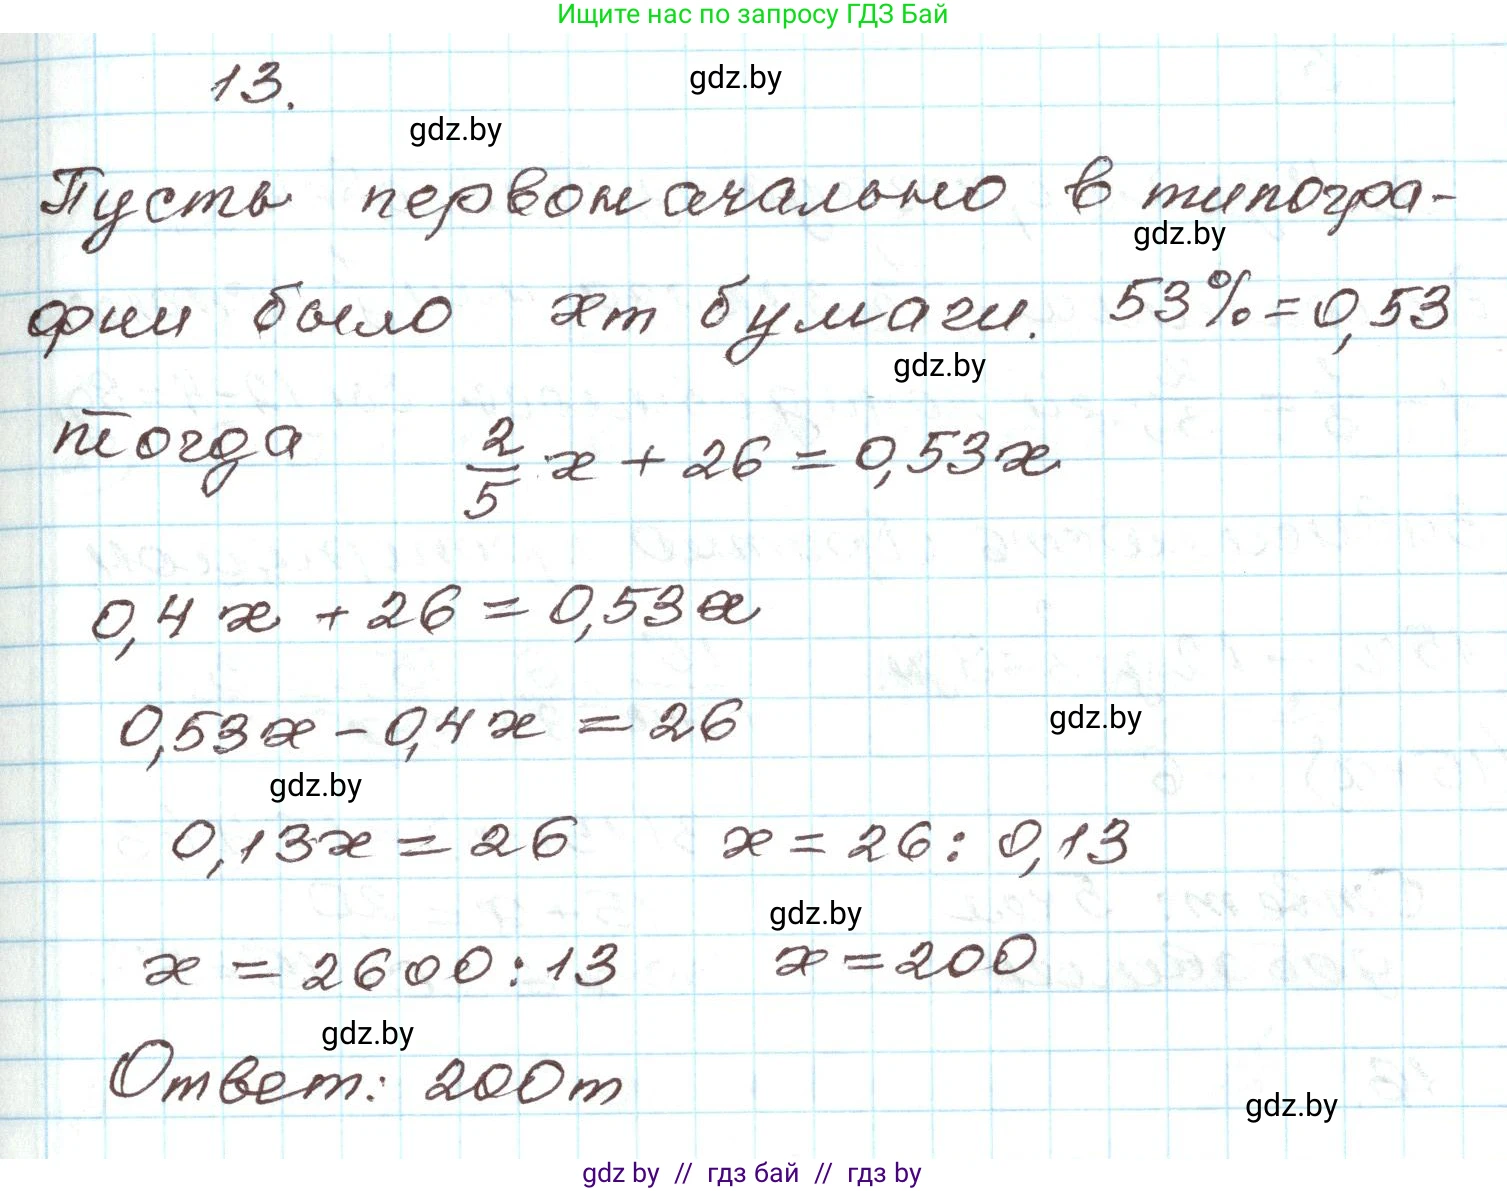 Ищите нас по запросу ГДЗ Бай
13.
gdz.by
gdz.by
Пусть первоначально в типогра-
gdz.by
фии было xт бумаги. 53% = 0,53
gdz.by
тогда 2/5 x + 26 = 0,53x
0,4x + 26 = 0,53x
0,53x - 0,4x = 26
gdz.by
gdz.by
0,13x = 26 x = 26 : 0,13
gdz.by
x = 2600 : 13 x = 200
gdz.by
Ответ: 200т
gdz.by
gdz by // гдз бай // гдз by